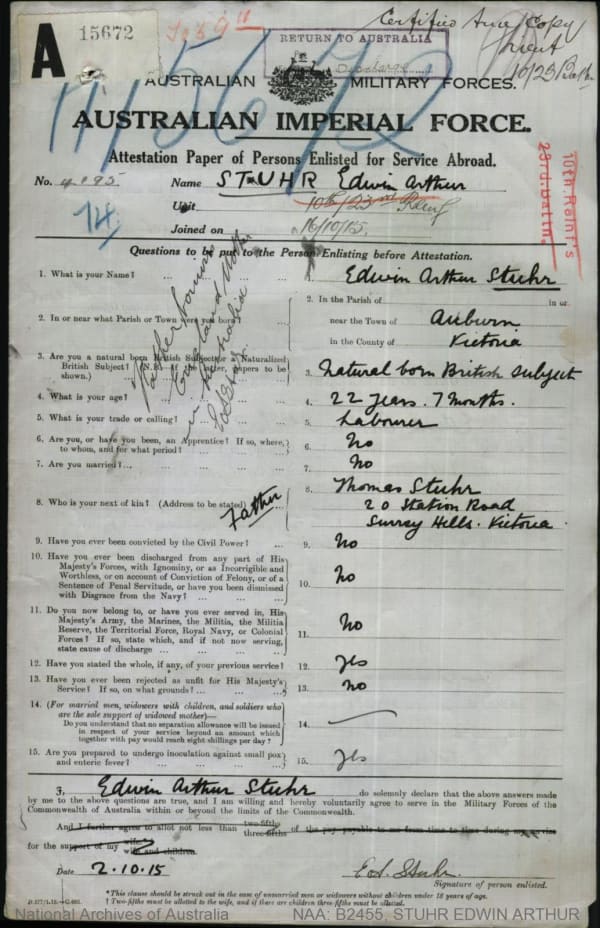 A
15672
Certified True Copy
RETURN TO AUSTRALIA
Discharge
AUSTRALIAN MILITARY FORCES.
AUSTRALIAN IMPERIAL FORCE.
Attestation Paper of Persons Enlisted for Service Abroad.
No. 4895 Name STUHR Edwin Arthur
Unit 10th/23rd Reinf
Joined on 16/10/15.
10th Reinf's
23rd. Battn.
Questions to be put to the Person Enlisting before Attestation.
1. What is your Name? ... 1. Edwin Arthur Stuhr
2. In or near what Parish or Town were you born? 2. In the Parish of in or
near the Town of Auburn
in the County of Victoria
3. Are you a natural born British Subject or a Naturalized
British Subject? (N.B.—If the latter, papers to be
shown.) 3. Natural born British Subject
4. What is your age? 4. 22 years. 7 months.
5. What is your trade or calling? 5. Labourer
6. Are you, or have you been, an Apprentice? If so, where,
to whom, and for what period? 6. No
7. Are you married?... 7. No
8. Who is your next of kin? (Address to be stated) Father 8. Thomas Stuhr
20 Station Road
Surrey Hills. Victoria
9. Have you ever been convicted by the Civil Power? 9. No
10. Have you ever been discharged from any part of His
Majesty's Forces, with Ignominy, or as Incorrigible and
Worthless, or on account of Conviction of Felony, or of a
Sentence of Penal Servitude, or have you been dismissed
with Disgrace from the Navy? 10. No
11. Do you now belong to, or have you ever served in, His
Majesty's Army, the Marines, the Militia, the Militia
Reserve, the Territorial Force, Royal Navy, or Colonial
Forces? If so, state which, and if not now serving,
state cause of discharge 11. No
12. Have you stated the whole, if any, of your previous service? 12. Yes
13. Have you ever been rejected as unfit for His Majesty's
Service? If so, on what grounds? 13. No
14. (For married men, widowers with children, and soldiers who
are the sole support of widowed mother)—
Do you understand that no separation allowance will be issued
in respect of your service beyond an amount which
together with pay would reach eight shillings per day? 14.
15. Are you prepared to undergo inoculation against small pox
and enteric fever? 15. Yes
I, Edwin Arthur Stuhr do solemnly declare that the above answers made
by me to the above questions are true, and I am willing and hereby voluntarily agree to serve in the Military Forces of the
Commonwealth of Australia within or beyond the limits of the Commonwealth.
And I further agree to allot not less than two-fifths three-fifths of the pay payable to me from time to time during my service
for the support of my wife wife and children.
Date 2.10.15 E.A. Stuhr.
Signature of person enlisted.
*This clause should be struck out in the case of unmarried men or widowers without children under 18 years of age.
† Two-fifths must be allotted to the wife, and if there are children three-fifths must be allotted.
National Archives of Australia NAA: B2455, STUHR EDWIN ARTHUR